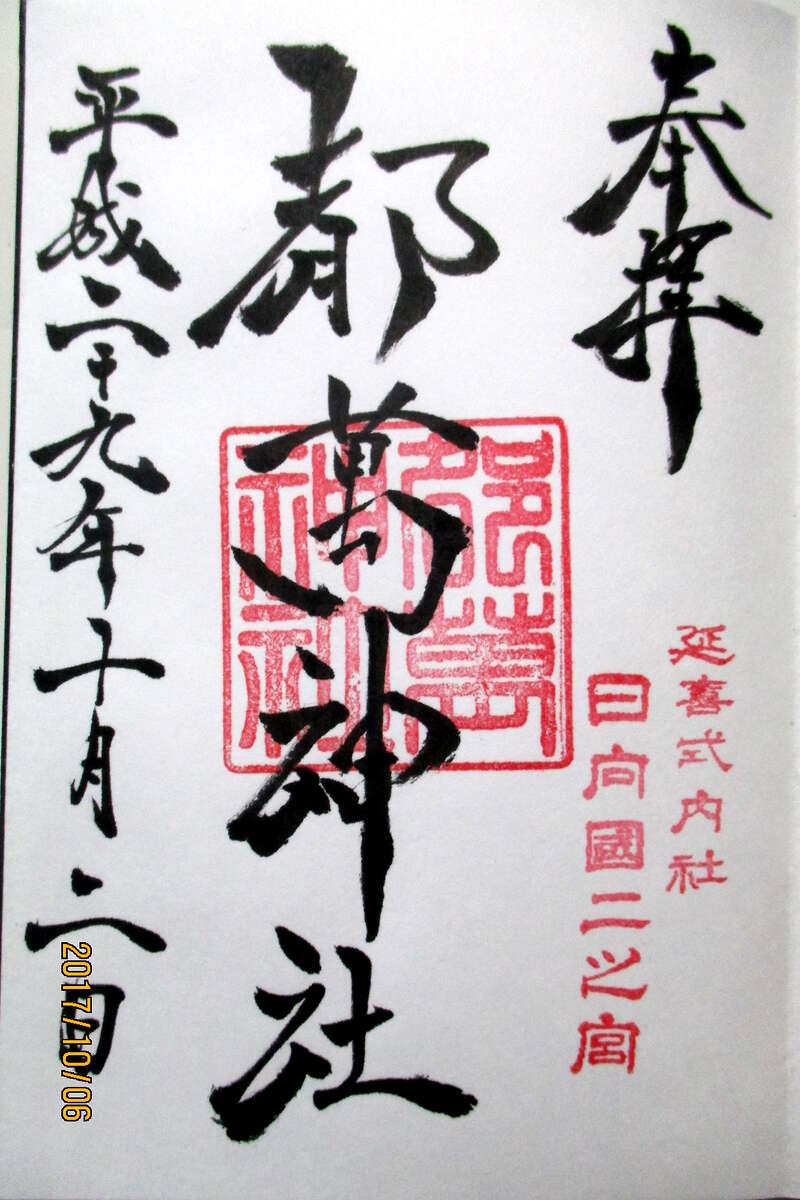 奉拝
延喜式内社
日向國二之宮
都萬神社
都萬
神社
平成二十九年十月二日
2017/10/06